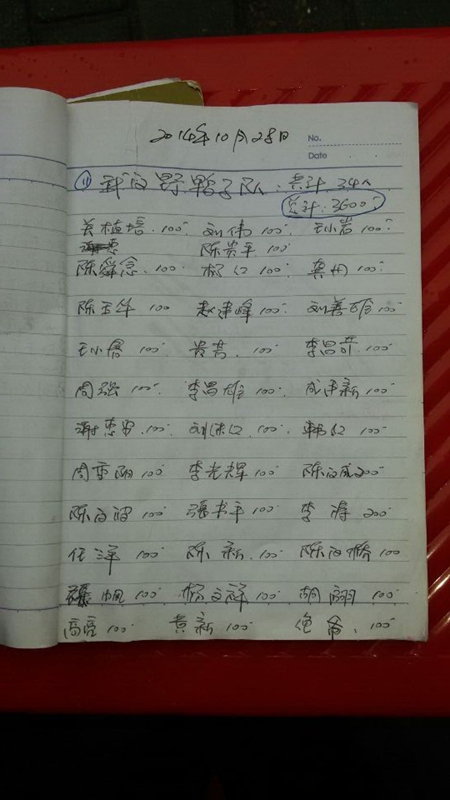 2014年10月28日
No.
Date
① 我的野鸭子队:共计:34人
总计:3600
关植培.100 刘伟100 王小岩100
陈贵平100
陈舜念.100 杨红100 龚丹100
陈玉华100 赵建峰100 刘善雄100
王小居100 100 李昌奇.100
周强100 李昌雄100 成建新100
谢李四.100 100 韩红100
周重阳100 李光辉100 陈成200
陈100 张书平100 李涛200
任洋100 陈新.100 陈桥100
帆100 杨文祥100 胡翮100
高亮100 黄新100 俭希.100